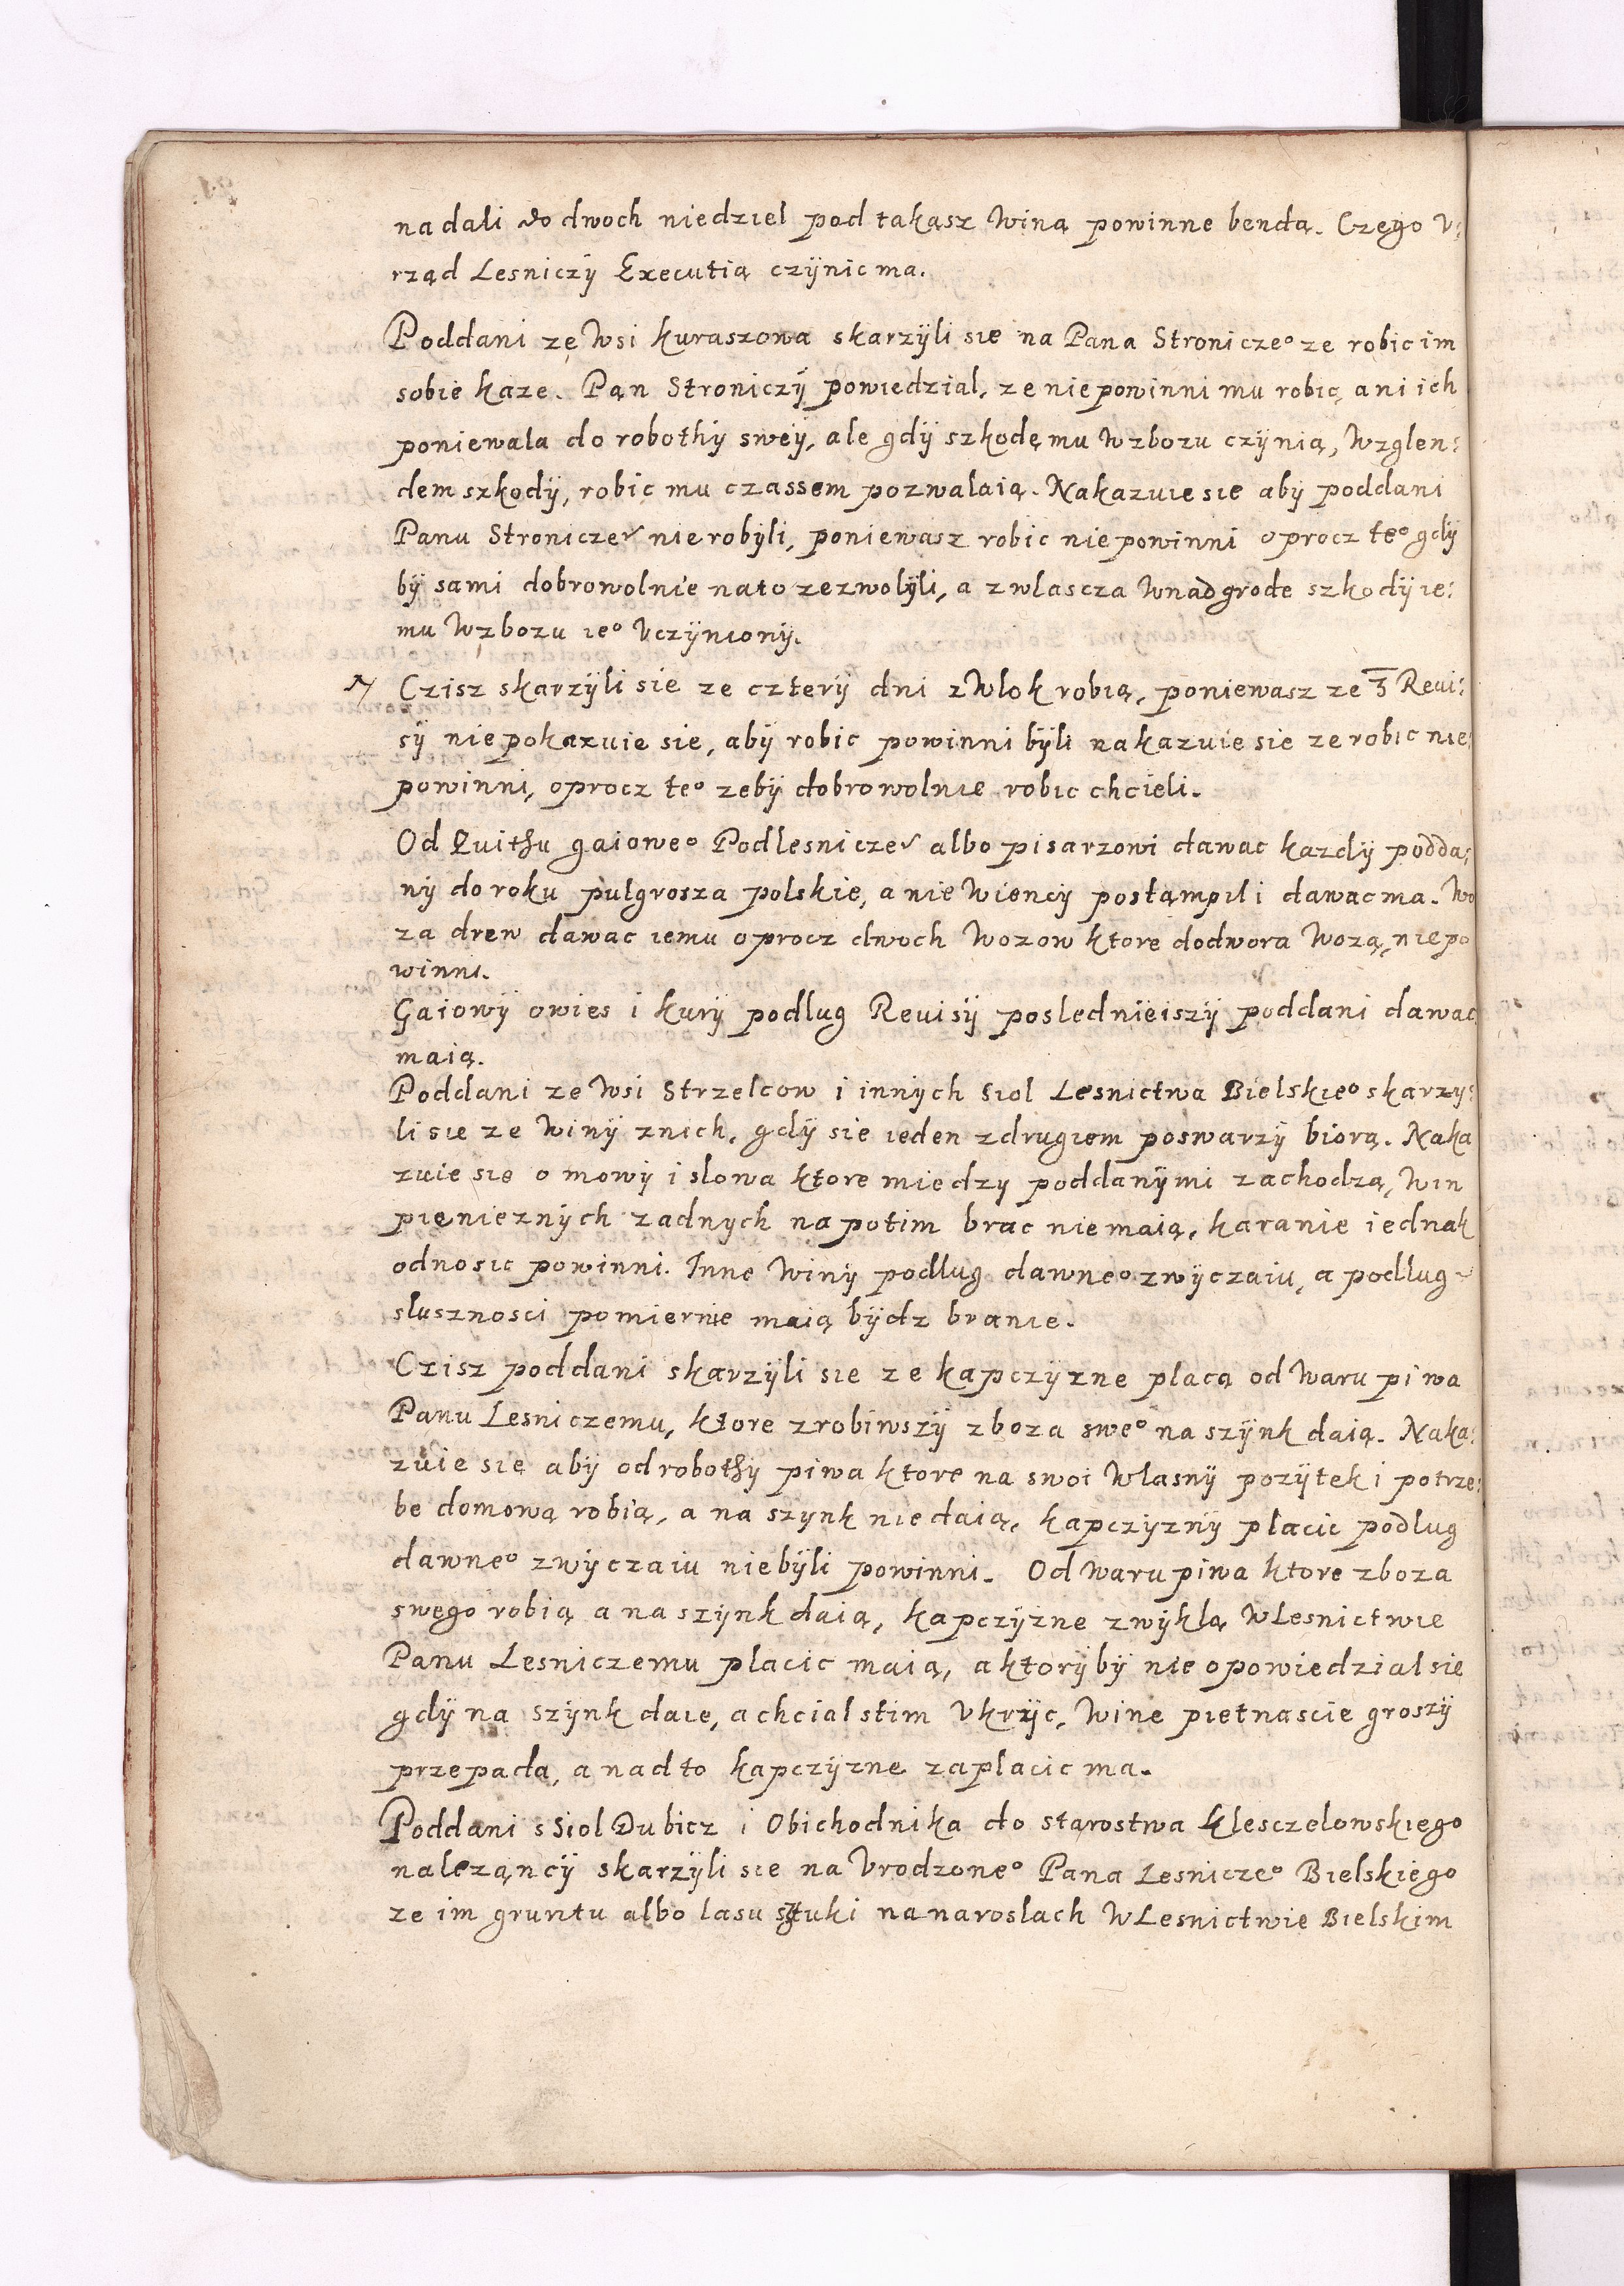 na dali do dwoch niedziel pod takąsz Winą powinne bendą. Czego V:
rząd Lesniczÿ Executią czÿnic ma.
Poddani zę Wsi Kuraszowa skarzÿli sie na Pana Stroniczeº ze robic im
sobie kaze. Pąn Stroniczÿ powiedzial, ze niepowinni mu robic, ani ich
poniewala do robothÿ sweÿ, ale gdÿ szkodę mu Wzbozu czÿnią, Wzglen:
dem szkodÿ, robic mu czassem pozwalaią. Nakazuie sie abÿ poddani
Panu Stroniczeᵛ nierobÿli, poniewasz robic niepowinni oprocz teº gdÿ
bÿ sami dobrowolnie nato zezwolÿli, a zwlascza Wnadgrode szkodÿ ie:
mu Wzbozu ieº Vczÿnionÿ.
Czisz skarzÿli sie ze czterÿ dni zWlok robią, poniewasz ze 3 Reui:
sÿ niepokazuie sie, abÿ robic powinni bÿli nakazuie sie ze robic nie:
powinni, oprocz teº zebÿ dobrowolnie robic chcieli.
Od Quithu gaioweº Podlesniczeᵛ albo pisarzowi dawac kazdÿ podda:
nÿ do roku pulgrosza polskie, a nie Wiencÿ postąmpili dawac ma. Wo
za drew dawac iemu oprocz dwoch Wozow ktore dodwora Wozą, niepo
winni.
Gaiowÿ owies i kurÿ podlug Reuisÿ posledniëiszÿ poddani dawac
maią.
Poddani ze Wsi Strzelcow i innÿch siol Lesnictwa Bielskieº skarzy:
li sie ze Winÿ znich, gdÿ sie ieden zdrugiem poswarzÿ biorą. Naka
zuie się o mowÿ i slowa ktore miedzy poddanÿmi zachodzą, Win
pienieznÿch zadnych napotim brac niemaią, karanie iednak
odnosic powinni. Inne Winÿ podlug dawneº zwÿczaiu, a podlug
slusznosci pomiernie maią bÿdz branie.
Czisz poddani skarzÿli sie ze kapczÿzne placą od Waru piwa
Panu Lesniczemu, ktore zrobiwszÿ zboza sweº na szÿnk daią. Naka:
zuie się abÿ od robothÿ piwa ktore na swoi Wlasnÿ pozÿtek i potrze:
be domową robią, a na szynk niedaią, kapczÿznÿ placic podlug
dawneº zwÿczaiu niebÿli powinni. Od waru piwa ktore zboza
swego robią a na szÿnk daią, kapczÿzne zwÿklą WLesnictwie
Panu Lesniczemu placic maią, a ktorÿbÿ nie opowiedzial sie
gdÿ na szÿnk daie, a chcial stim Vkrÿc, Wine pietnascie groszÿ
przepada, a nadto kapczÿzne zaplacic ma.
Poddani s Siol Dubicz i Obichodnika do starostwa Klesczelowskiego
nalezącÿ skarzÿli sie na Vrodzoneº Pana Lesniczeº Bielskiego
ze im gruntu albo lasu sztuki na naroslach WLesnictwie Bielskim